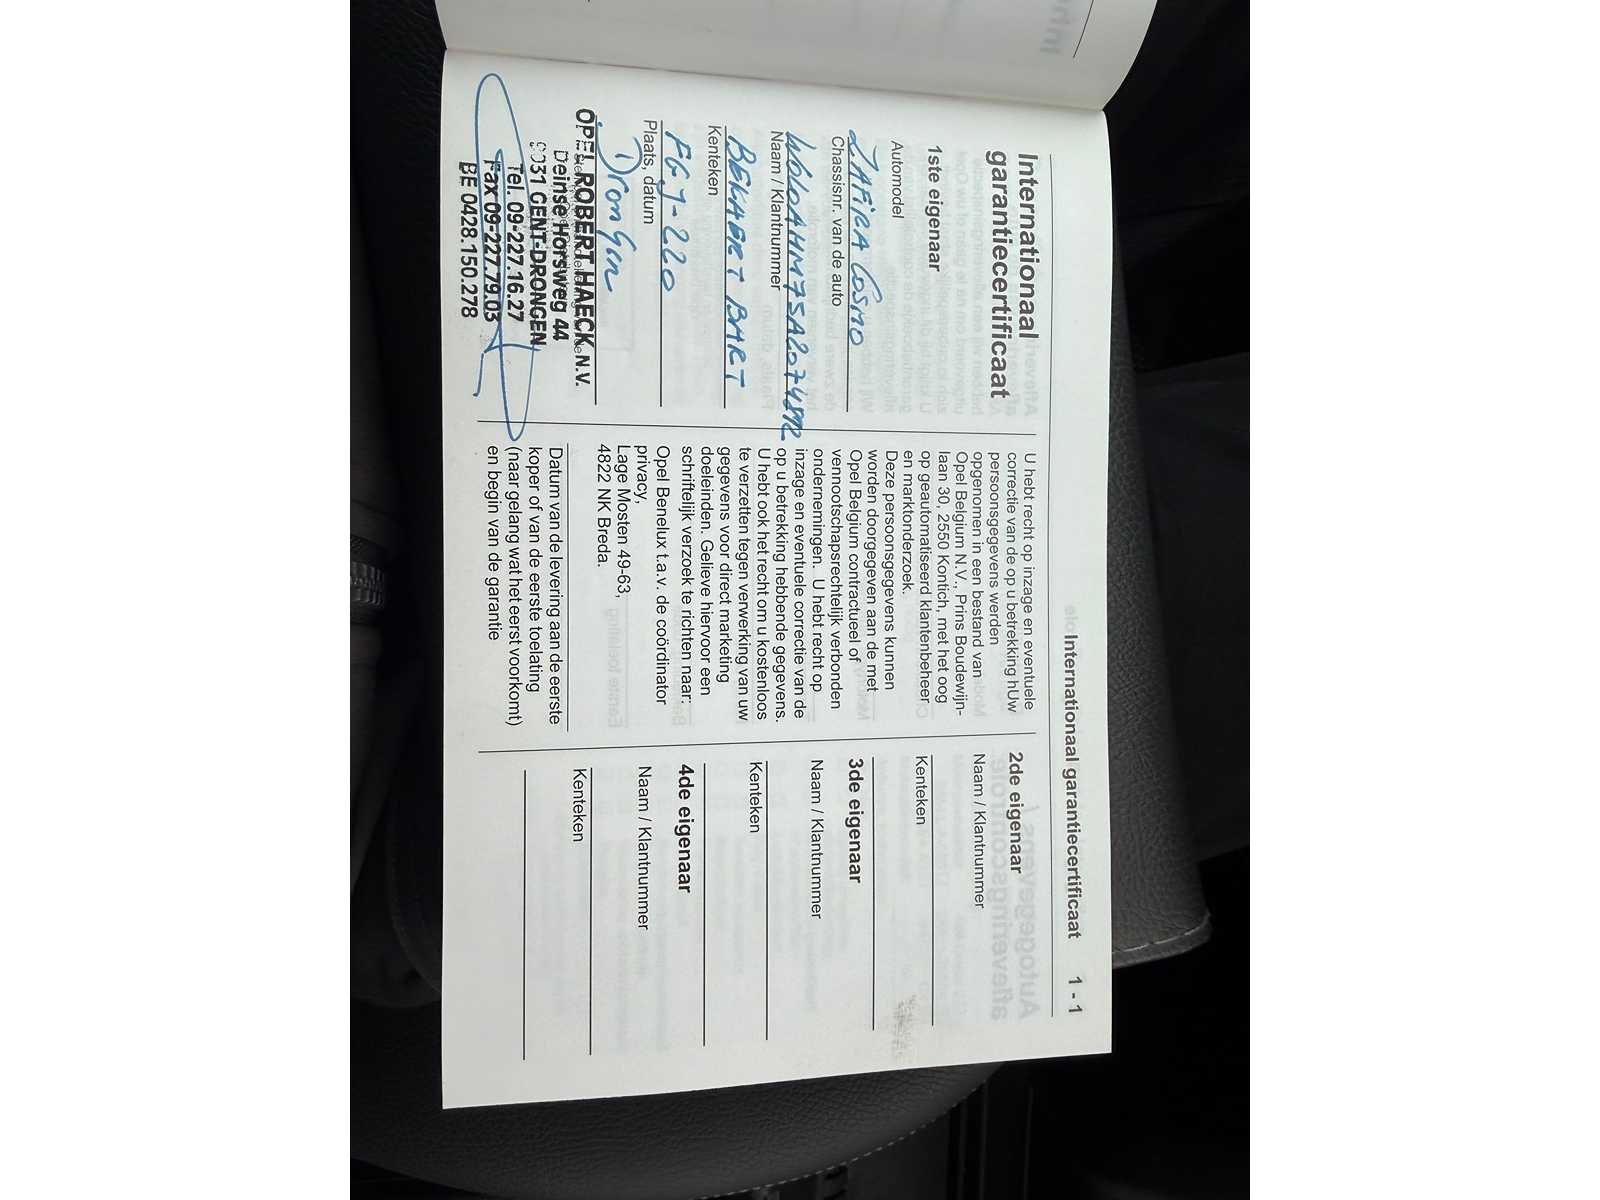 Internationaal garantiecertificaat 1 - 1
Internationaal
garantiecertificaat
1ste eigenaar
Automodel
ZAFIRA COSMO
Chassisnr. van de auto
Naam / Klantnummer
BEKAERT BART
Kenteken
FGJ-220
Plaats, datum
Drongen
OPEL ROBERT HAECK N.V.
Deinse Horsweg 44
9031 GENT-DRONGEN
Tel. 09-227.16.27
Fax 09-227.79.03
BE 0428.150.278
U hebt recht op inzage en eventuele
correctie van de op u betrekking hUw
persoonsgegevens werden
opgenomen in een bestand van
Opel Belgium N.V., Prins Boudewijn-
laan 30, 2550 Kontich, met het oog
op geautomatiseerd klantenbeheer
en marktonderzoek.
Deze persoonsgegevens kunnen
worden doorgegeven aan de met
Opel Belgium contractueel of
vennootschapsrechtelijk verbonden
ondernemingen. U hebt recht op
inzage en eventuele correctie van de
op u betrekking hebbende gegevens.
U hebt ook het recht om u kostenloos
te verzetten tegen verwerking van uw
gegevens voor direct marketing
doeleinden. Gelieve hiervoor een
schriftelijk verzoek te richten naar:
Opel Benelux t.a.v. de coördinator
privacy,
Lage Mosten 49-63,
4822 NK Breda.
Datum van de levering aan de eerste
koper of van de eerste toelating
(naar gelang wat het eerst voorkomt)
en begin van de garantie
2de eigenaar
Naam / Klantnummer
Kenteken
3de eigenaar
Naam / Klantnummer
Kenteken
4de eigenaar
Naam / Klantnummer
Kenteken